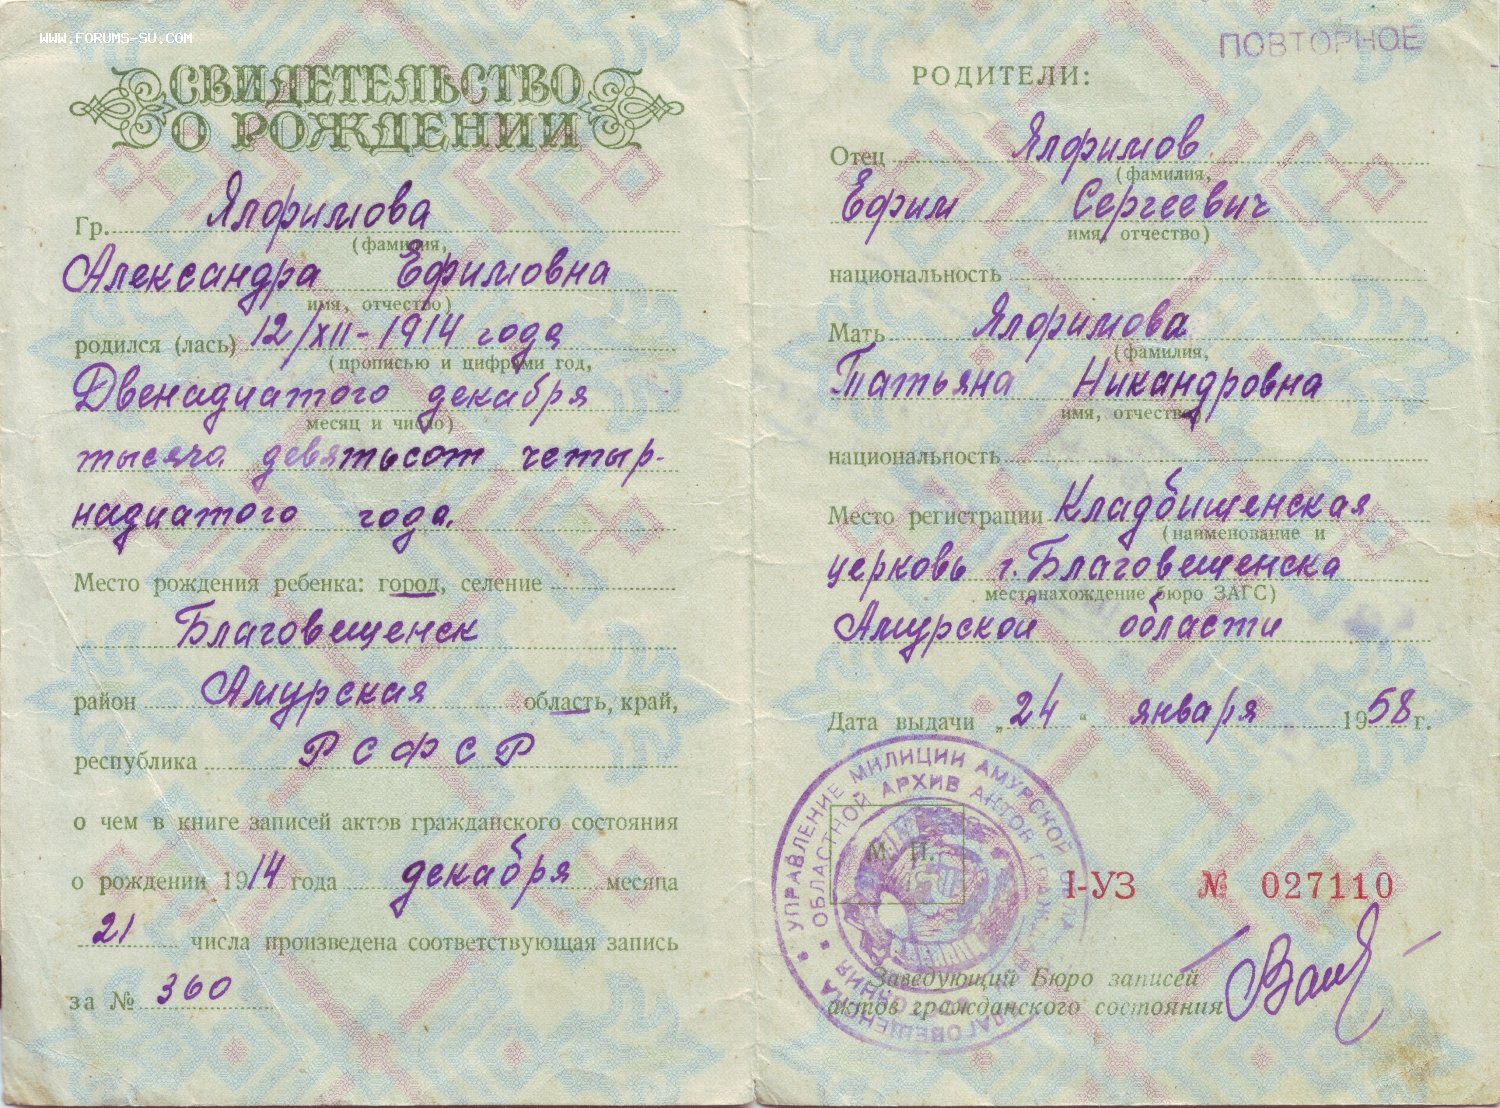 WWW.FORUMS-SU.COM
СВИДЕТЕЛЬСТВО
О РОЖДЕНИИ
Гр. Ялфимова
(фамилия,
Александра Ефимовна
имя, отчество)
родился (лась) 12/XII-1914 года
(прописью и цифрами год,
Двенадцатого декабря
месяц и число)
тысяча девятьсот четыр-
надцатого года.
Место рождения ребенка: город, селение
Благовещенск
район Амурская область, край,
республика РСФСР
о чем в книге записей актов гражданского состояния
о рождении 1914 года декабря месяца
21 числа произведена соответствующая запись
за № 360
ПОВТОРНОЕ
РОДИТЕЛИ:
Отец Ялфимов
(фамилия,
Ефим Сергеевич
имя, отчество)
национальность
Мать Ялфимова
(фамилия,
Татьяна Никандровна
имя, отчество)
национальность
Место регистрации Кладбищенская
(наименование и
церковь г. Благовещенска
местонахождение бюро ЗАГС)
Амурской области
Дата выдачи „24“ января 1958 г.
УПРАВЛЕНИЕ МИЛИЦИИ АМУРСКОЙ
ОБЛАСТНОЙ АРХИВ АКТОВ
М. П.
I-УЗ № 027110
Заведующий Бюро записей
актов гражданского состояния